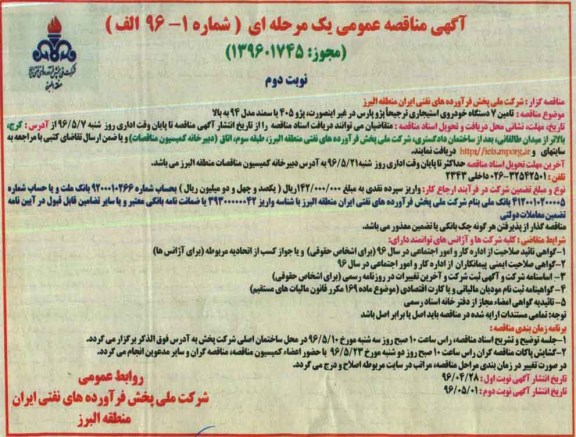 آگهی مناقصه عمومی یک مرحله ای ( شماره ۱- ۹۶ الف )
(مجوز: ۱۳۹۶۰۱۷۴۵)
نوبت دوم
مناقصه گزار : شرکت ملی پخش فرآورده های نفتی ایران منطقه البرز
موضوع مناقصه : تامین ۷ دستگاه خودروی استیجاری ترجیحاً پژو پارس در غیر اینصورت، پژو ۴۰۵ یا سمند مدل ۹۴ به بالا
تاریخ، مهلت، نشانی محل دریافت و تحویل اسناد مناقصه : متقاضیان می توانند دریافت اسناد مناقصه را از تاریخ انتشار آگهی مناقصه تا پایان وقت اداری روز شنبه ۹۶/۵/۷ از آدرس : کرج،
بالاتر از میدان طالقانی، بعد از ساختمان دادگستری، شرکت ملی پخش فرآورده های نفتی منطقه البرز، طبقه سوم، اتاق (دبیرخانه کمیسیون مناقصات) و یا ضمن ارسال تقاضای کتبی با مراجعه به
سایتهای http://iets.mporg.ir و دریافت نمایند.
آخرین مهلت تحویل اسناد مناقصه حداکثر تا پایان وقت اداری روز شنبه ۹۶/۵/۲۱ به آدرس دبیرخانه کمیسیون مناقصات منطقه البرز می باشد.
تلفن : ۳۲۵۴۲۵۰۱-۰۲۶ داخلی ۲۳۴۳
نوع و مبلغ تضمین شرکت در فرآیند ارجاع کار: واریز سپرده نقدی به مبلغ ۱۴۲/۰۰۰/۰۰۰ ریال ( یکصد و چهل و دو میلیون ریال ) بحساب شماره ۹۲۰۰۰۱۰۲۶۶ بانک ملت و یا حساب شماره
۴۱۲۰۰۱۰۲۰۰۰۵ بانک ملی بنام شرکت ملی پخش فرآورده های نفتی ایران منطقه البرز با شناسه واریز ۳۹۳۰۰۰۰۰۰۴۲ یا ضمانت نامه بانکی معتبر و یا سایر تضامین قابل قبول در آیین نامه
تضمین معاملات دولتی
مناقصه گذار از پذیرفتن هر گونه چک بانکی یا تضمین معذور می باشد.
شرایط متقاضی : کلیه شرکت ها و آژانس های توانمند دارای:
۱-گواهی تائید صلاحیت از اداره کار و امور اجتماعی در سال ۹۶ (برای اشخاص حقوقی) و یا جواز کسب از اتحادیه مربوطه (برای آژانس ها)
۲-گواهی صلاحیت ایمنی پیمانکاران از اداره کار و امور اجتماعی در سال ۹۶
۳- اساسنامه شرکت و آگهی ثبت شرکت و آخرین تغییرات در روزنامه رسمی (برای اشخاص حقوقی)
۴-گواهینامه ثبت نام مودیان مالیاتی و یا کارت اقتصادی (موضوع ماده ۱۶۹ مکرر قانون مالیات های مستقیم)
۵- تائیدیه گواهی امضاء مجاز از دفتر خانه اسناد رسمی
توجه: تمامی مستندات ارایه شده در مناقصه باید اصل یا برابر اصل باشد
برنامه زمان بندی مناقصه:
۱-جلسه توضیح و تشریح اسناد مناقصه، راس ساعت ۱۰ صبح روز سه شنبه مورخ ۹۶/۵/۱۰ در محل ساختمان اصلی شرکت پخش به آدرس فوق الذکر برگزار می گردد.
۲-گشایش پاکات مناقصه گران راس ساعت ۱۰ صبح روز دو شنبه مورخ ۹۶/۵/۲۳ با حضور اعضاء کمیسیون مناقصه، مناقصه گران و سایر مدعوین انجام می گردد.
در صورت تغییر در زمان بندی مراحل مناقصه، مراتب در سایت مربوطه اصلاح و درج می گردد.
تاریخ انتشار آگهی نوبت اول : ۹۶/۰۴/۲۸
تاریخ انتشار آگهی نوبت دوم : ۹۶/۰۵/۰۱
روابط عمومی
شرکت ملی پخش فرآورده های نفتی ایران
منطقه البرز